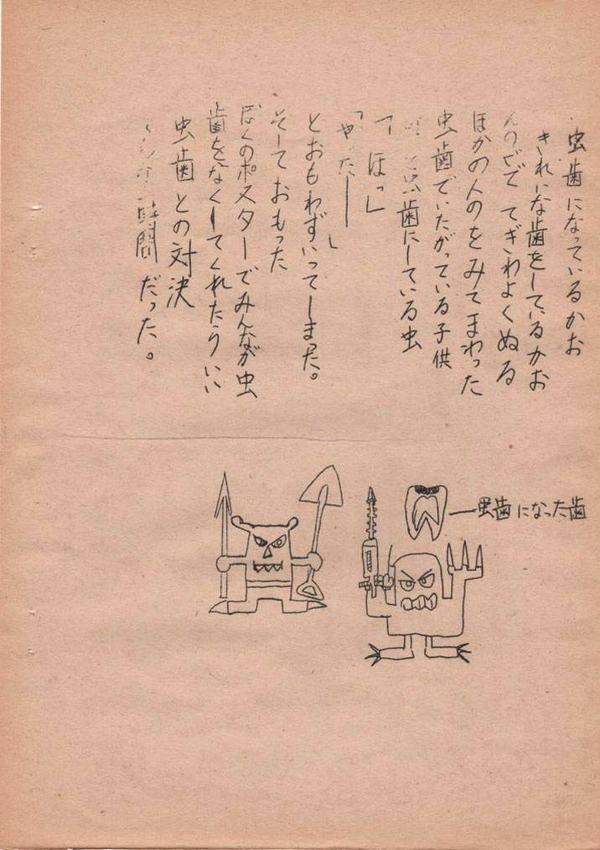 虫歯になっているかお
きれいな歯をしているかお
てぎわよくぬる
ほかの人のをみてまわった
虫歯でいたがっている子供
歯にしている虫
「ほっ」
「やったー」
とおもわずいってしまった。
そしておもった
ぼくのポスターでみんなが虫
歯をなくしてくれたらいい
虫歯との対決
時間だった。
虫歯になった歯